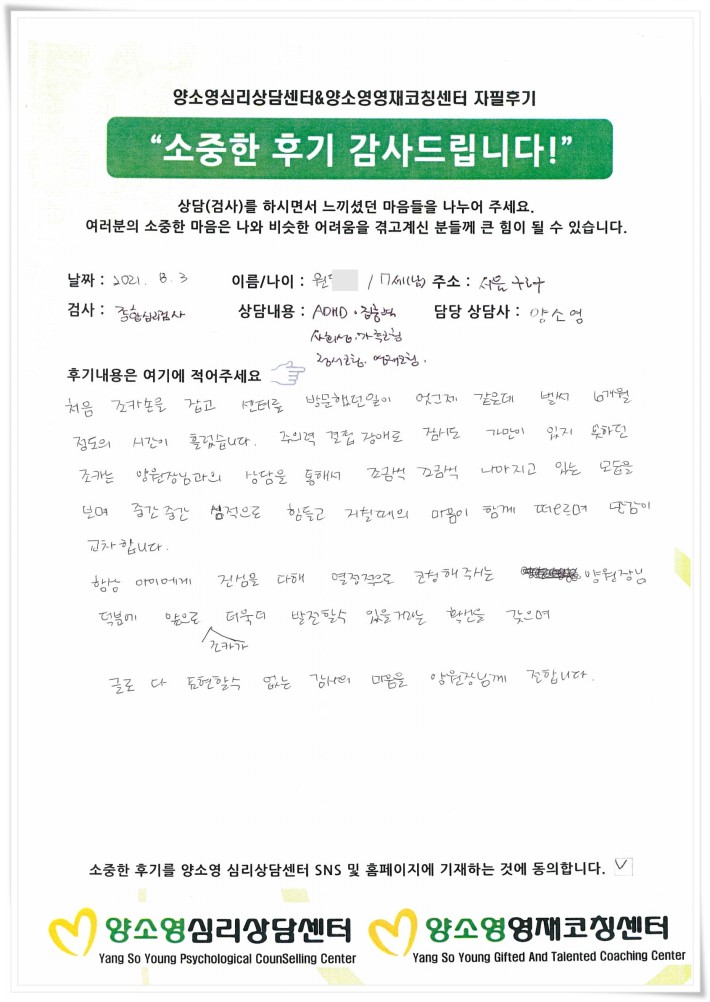 양소영심리상담센터&양소영영재코칭센터 자필후기
“소중한 후기 감사드립니다!”
상담(검사)를 하시면서 느끼셨던 마음들을 나누어 주세요.
여러분의 소중한 마음은 나와 비슷한 어려움을 겪고계신 분들께 큰 힘이 될 수 있습니다.
날짜 : 2021. 8. 3 이름/나이 : 원 / 17세(남) 주소 : 서울 구로구
검사 : 종합심리검사 상담내용 : ADHD · 집중력 담당 상담사 : 양소영
사회성·가족코칭
정서코칭·
후기내용은 여기에 적어주세요
처음 조카손을 잡고 센터를 방문했던일이 엊그제 같은데 벌써 6개월
정도의 시간이 흘렀습니다. 주의력 결핍 장애로 잠시도 가만이 있지 못하던
조카는 양원장님과의 상담을 통해서 조금씩 조금씩 나아지고 있는 모습을
보며 중간중간 심적으로 힘들고 지칠때의 마음이 함께 떠오르며 만감이
교차합니다.
항상 아이에게 진심을 다해 열정적으로 코칭해주시는 양원장님
덕분에 앞으로 조카가 더욱더 발전할수 있을거라는 확신을 갖으며
글로 다 표현할수 없는 감사의 마음을 양원장님께 전합니다.
소중한 후기를 양소영 심리상담센터 SNS 및 홈페이지에 기재하는 것에 동의합니다.
양소영심리상담센터 양소영영재코칭센터
Yang So Young Psychological CounSelling Center Yang So Young Gifted And Talented Coaching Center